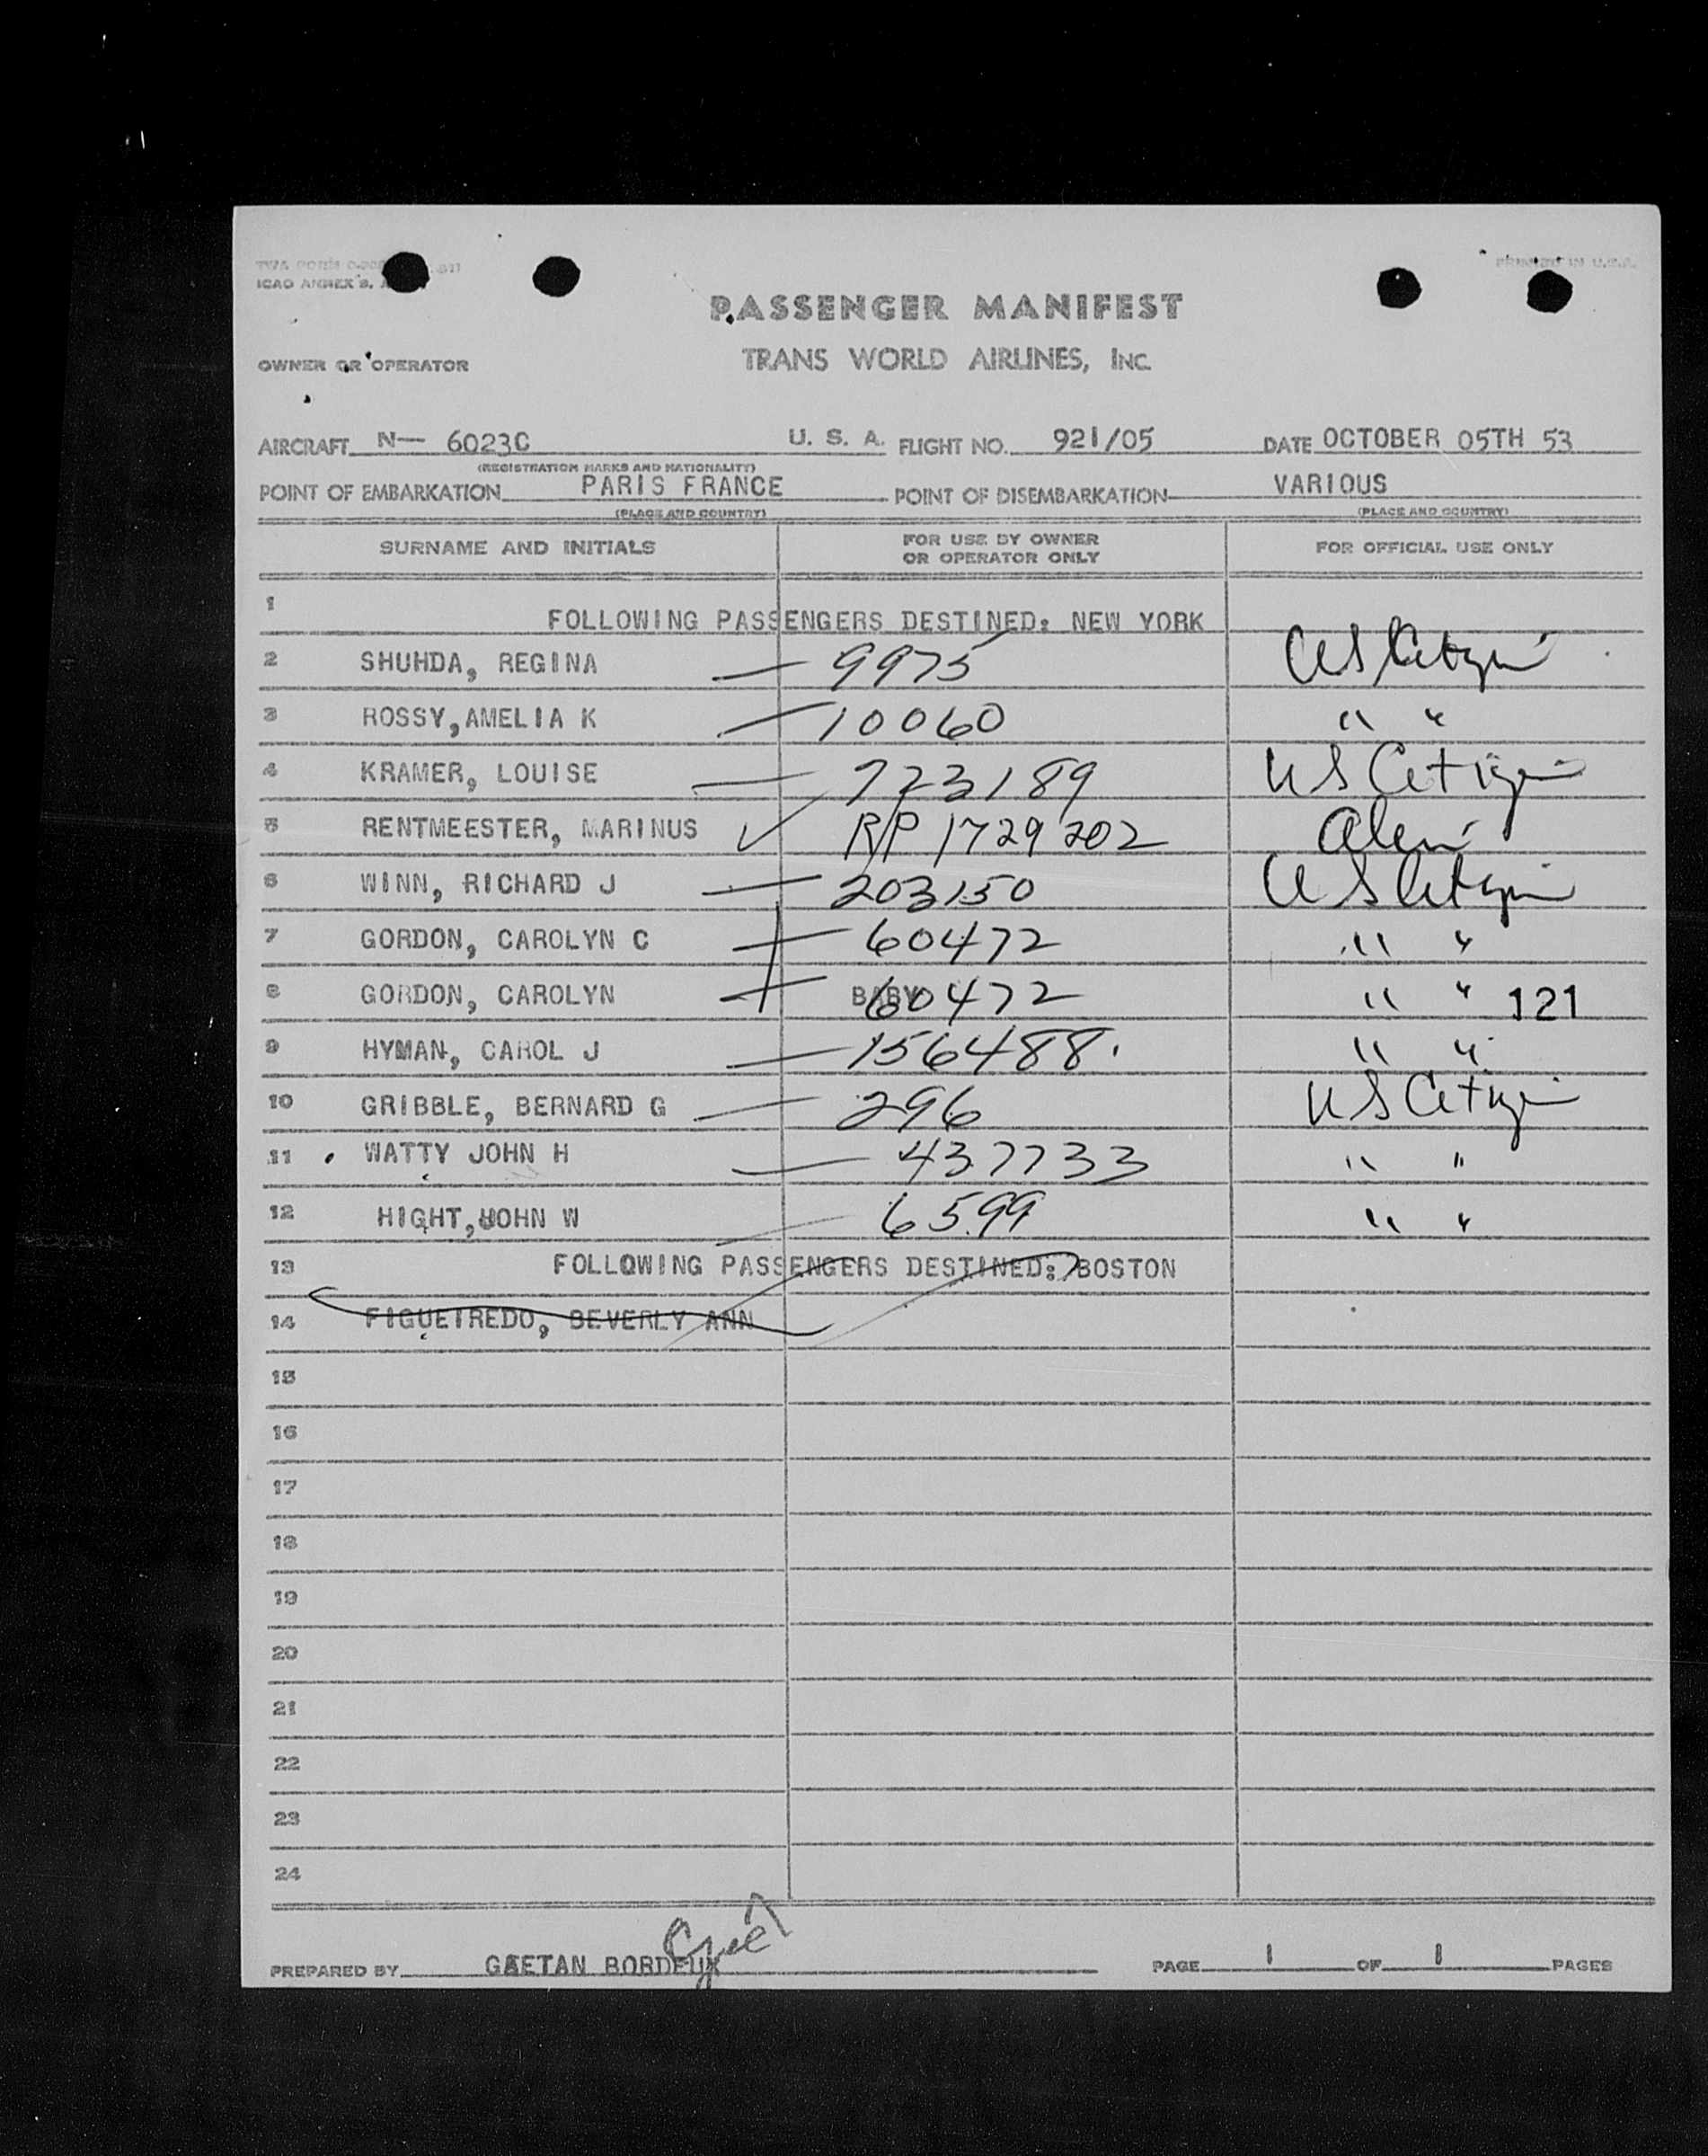 ICAO ANNEX 9,
PRINTED IN U.S.A.
PASSENGER MANIFEST
OWNER OR OPERATOR TRANS WORLD AIRLINES, INC.
AIRCRAFT N- 6023C U. S. A. FLIGHT NO. 921/05 DATE OCTOBER 05TH 53
(REGISTRATION MARKS AND NATIONALITY)
POINT OF EMBARKATION PARIS FRANCE POINT OF DISEMBARKATION VARIOUS
(PLACE AND COUNTRY) (PLACE AND COUNTRY)
SURNAME AND INITIALS FOR USE BY OWNER OR OPERATOR ONLY FOR OFFICIAL USE ONLY
1 FOLLOWING PASSENGERS DESTINED: NEW YORK
2 SHUHDA, REGINA — 9975 US Citizen
3 ROSSY,AMELIA K — 10060 " "
4 KRAMER, LOUISE — 723189 US Citizen
5 RENTMEESTER, MARINUS ✓ RP 1729202 Alien
6 WINN, RICHARD J — 203150 US Citizen
7 GORDON, CAROLYN C — 60472 " "
8 GORDON, CAROLYN — BABY 60472 " " 121
9 HYMAN, CAROL J — 156488. " "
10 GRIBBLE, BERNARD G — 296 US Citizen
11 WATTY JOHN H — 437733 " "
12 HIGHT,JOHN W — 6599 " "
13 FOLLOWING PASSENGERS DESTINED: BOSTON
14 FIGUEIREDO, BEVERLY ANN
15
16
17
18
19
20
21
22
23
24
PREPARED BY GAETAN BORDEUX PAGE 1 OF 1 PAGES